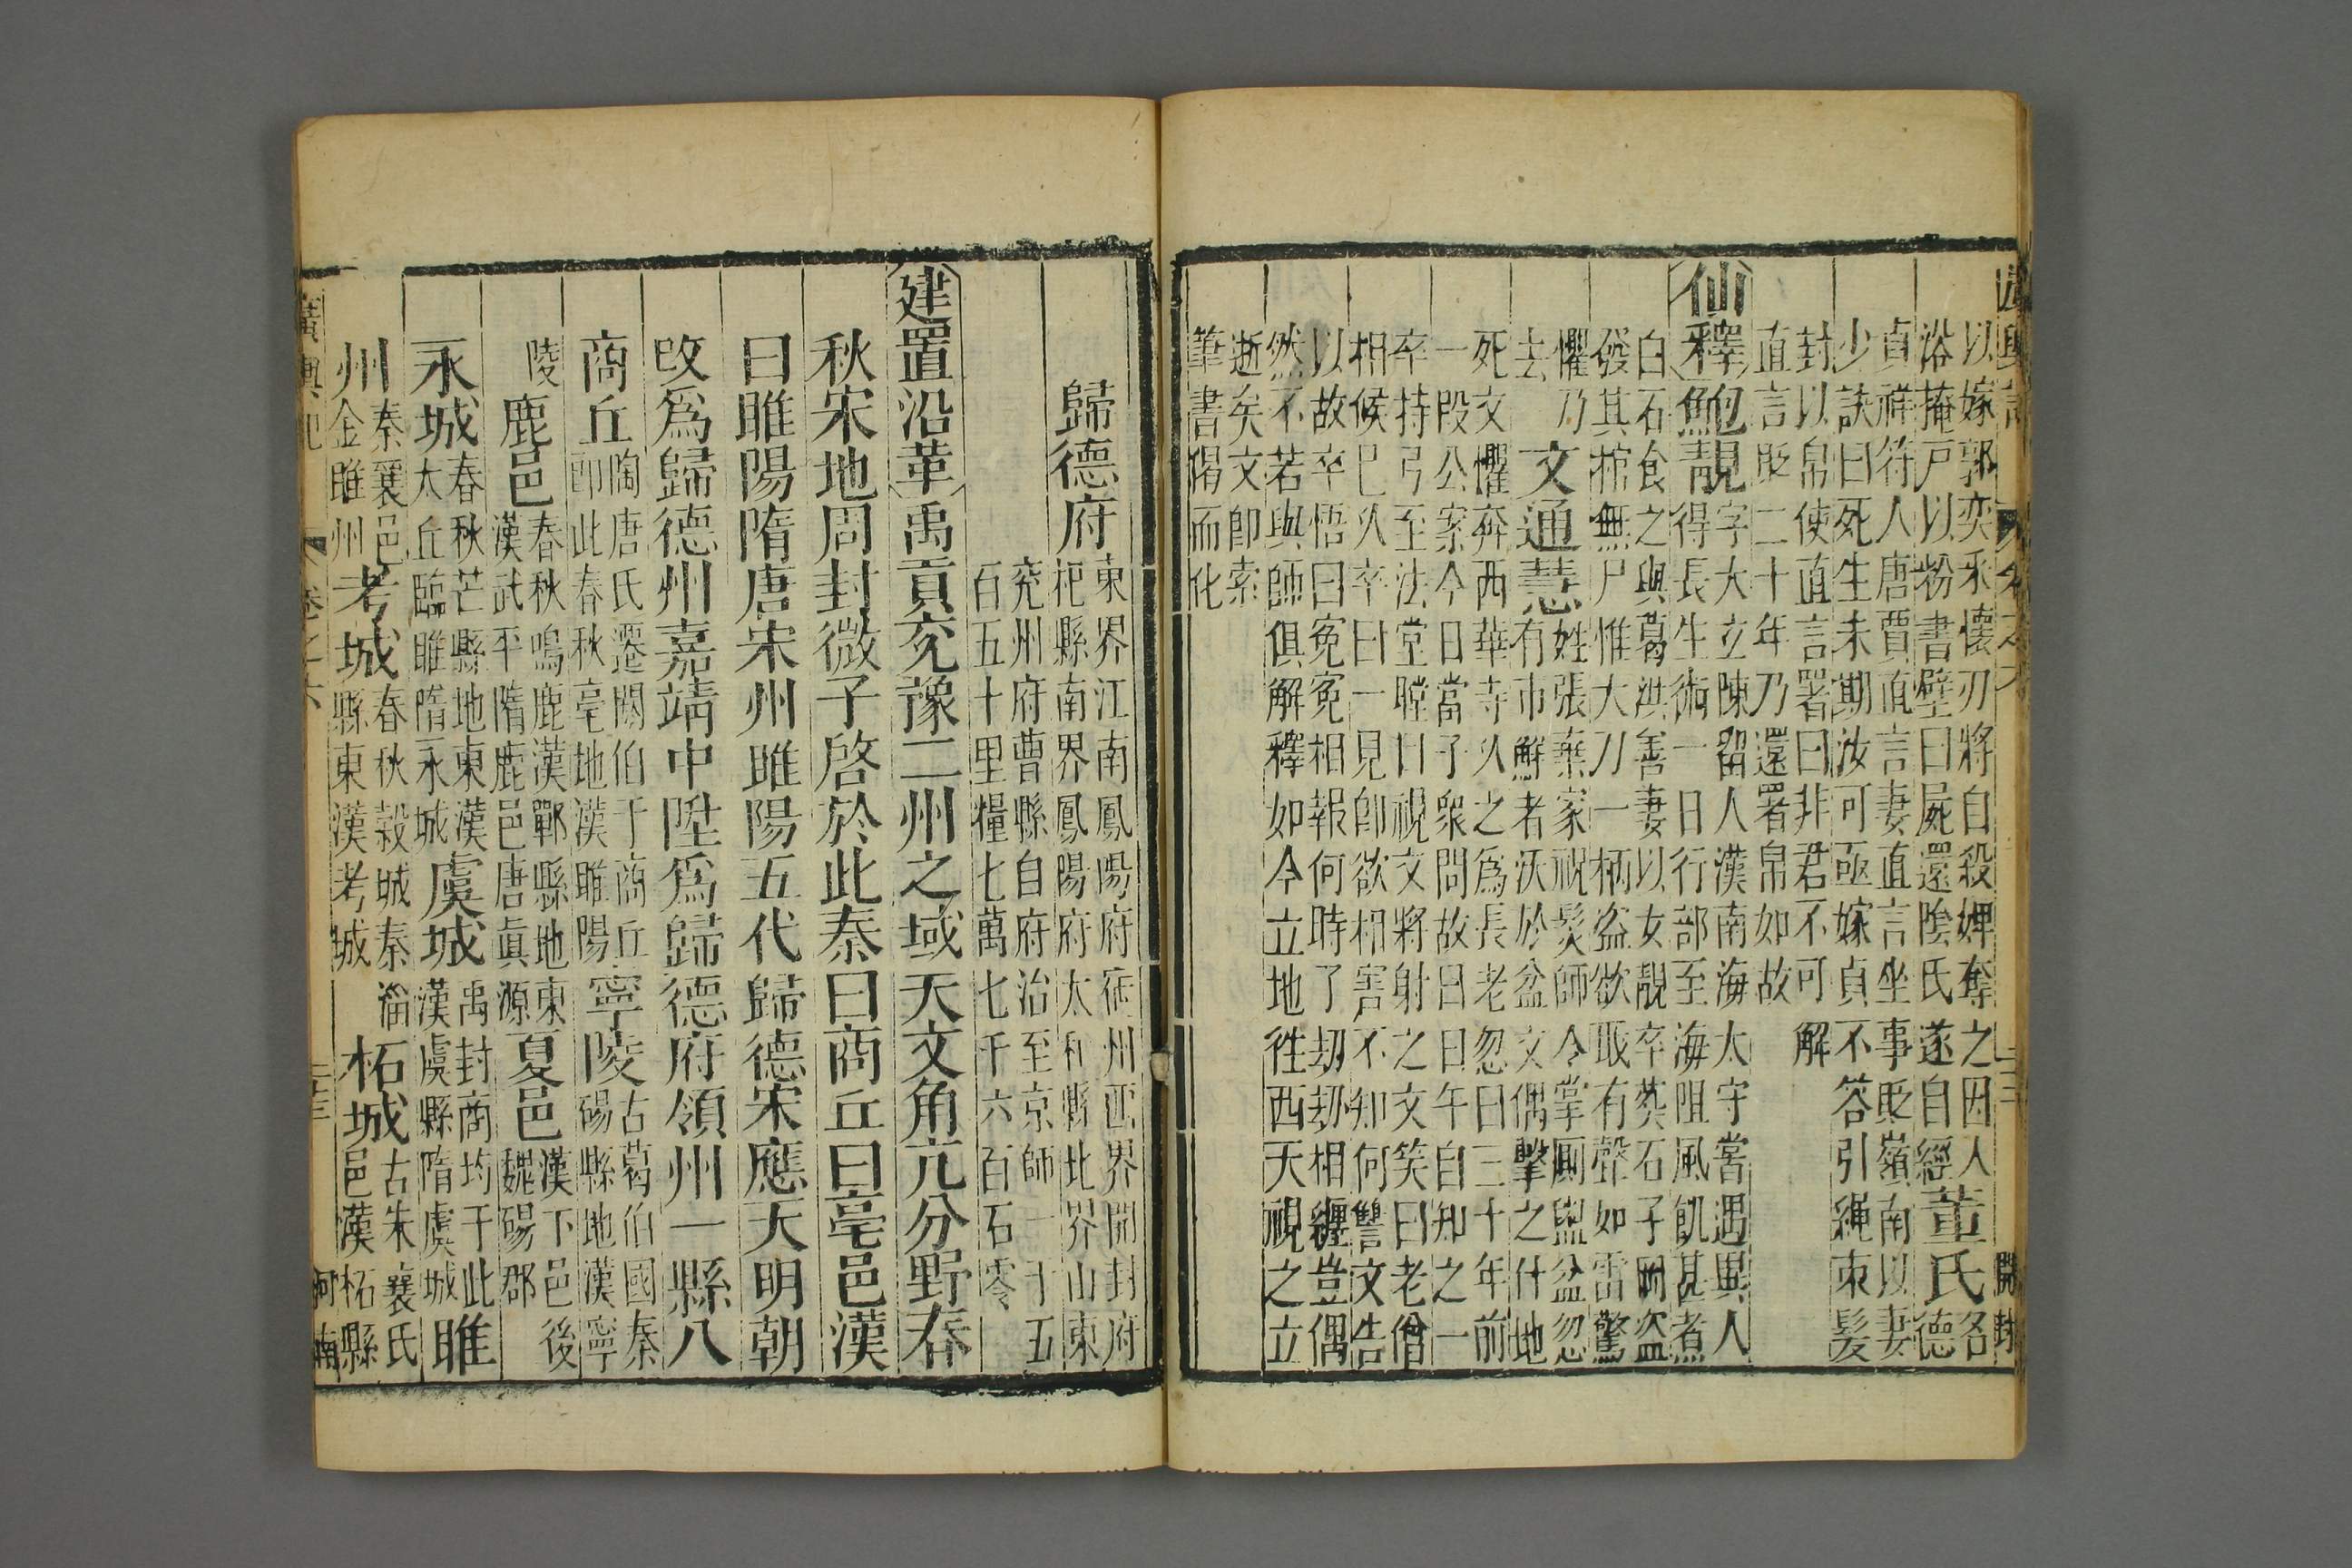 以嫁郭奕氶懷刃將自殺婢奪之因人
浴掩戶以粉書壁曰屍還陰氏遂自經
董氏
名
德
貞祥符人唐賈直言妻直言坐事貶嶺南以妻
少訣曰死生未期汝可亟嫁貞不答引繩束髮
封以帛使直言署曰非君不可解
直言貶二十年乃還署帛如故
仙釋鮑靚
字大立陳留人漢南海太守嘗遇異人
得長生術一日行部至海阻風飢甚煮
白石食之與葛洪善妻以女靚卒葬石子岡盜
發其棺無尸惟大刀一柄盜欲取有聲如雷驚
懼乃
去
文通慧
姓張棄家祝髮師令掌厠盥盆忽
有市鮮者沃於盆文偶擊之仆地
死文懼奔西華寺久之為長老忽曰三十年前
一段公案今日當了衆問故曰日午自知之一
卒持弓至法堂瞠目視文將射之文笑曰老僧
相候已久卒曰一見即欲相害不知何讐文告
以故卒悟曰冤冤相報何時了劫劫相纏豈偶
然不若與師俱解釋如今立地往西天視之立
逝矣文即索
筆書偈而化
歸德府
東界江南鳳陽府宿州西界開封府
杞縣南界鳳陽府太和縣北界山東
兖州府曹縣自府治至京師一千五
百五十里糧七萬七千六百石零
建置沿革禹貢兖豫二州之域天文角亢分野春
秋宋地周封微子啓於此秦曰商丘曰亳邑漢
曰睢陽隋唐宋州睢陽五代歸德宋應天明朝
攺爲歸德州嘉靖中陞爲歸德府領州一縣八
商丘
陶唐氏遷閼伯于商丘
即此春秋亳地漢睢陽
寧陵
古葛伯國秦
碭縣地漢寧
陵
鹿邑
春秋鳴鹿漢鄲縣地東
漢武平隋鹿邑唐眞源
夏邑
漢下邑後
魏碭郡
永城
春秋芒縣地東漢
太丘臨睢隋永城
虞城
禹封商均于此
漢虞縣隋虞城
睢
州
秦襄邑
金睢州
考城
春秋穀城秦甾
縣東漢考城
柘城
古朱襄氏
邑漢柘縣
廣輿記
卷之六
河南